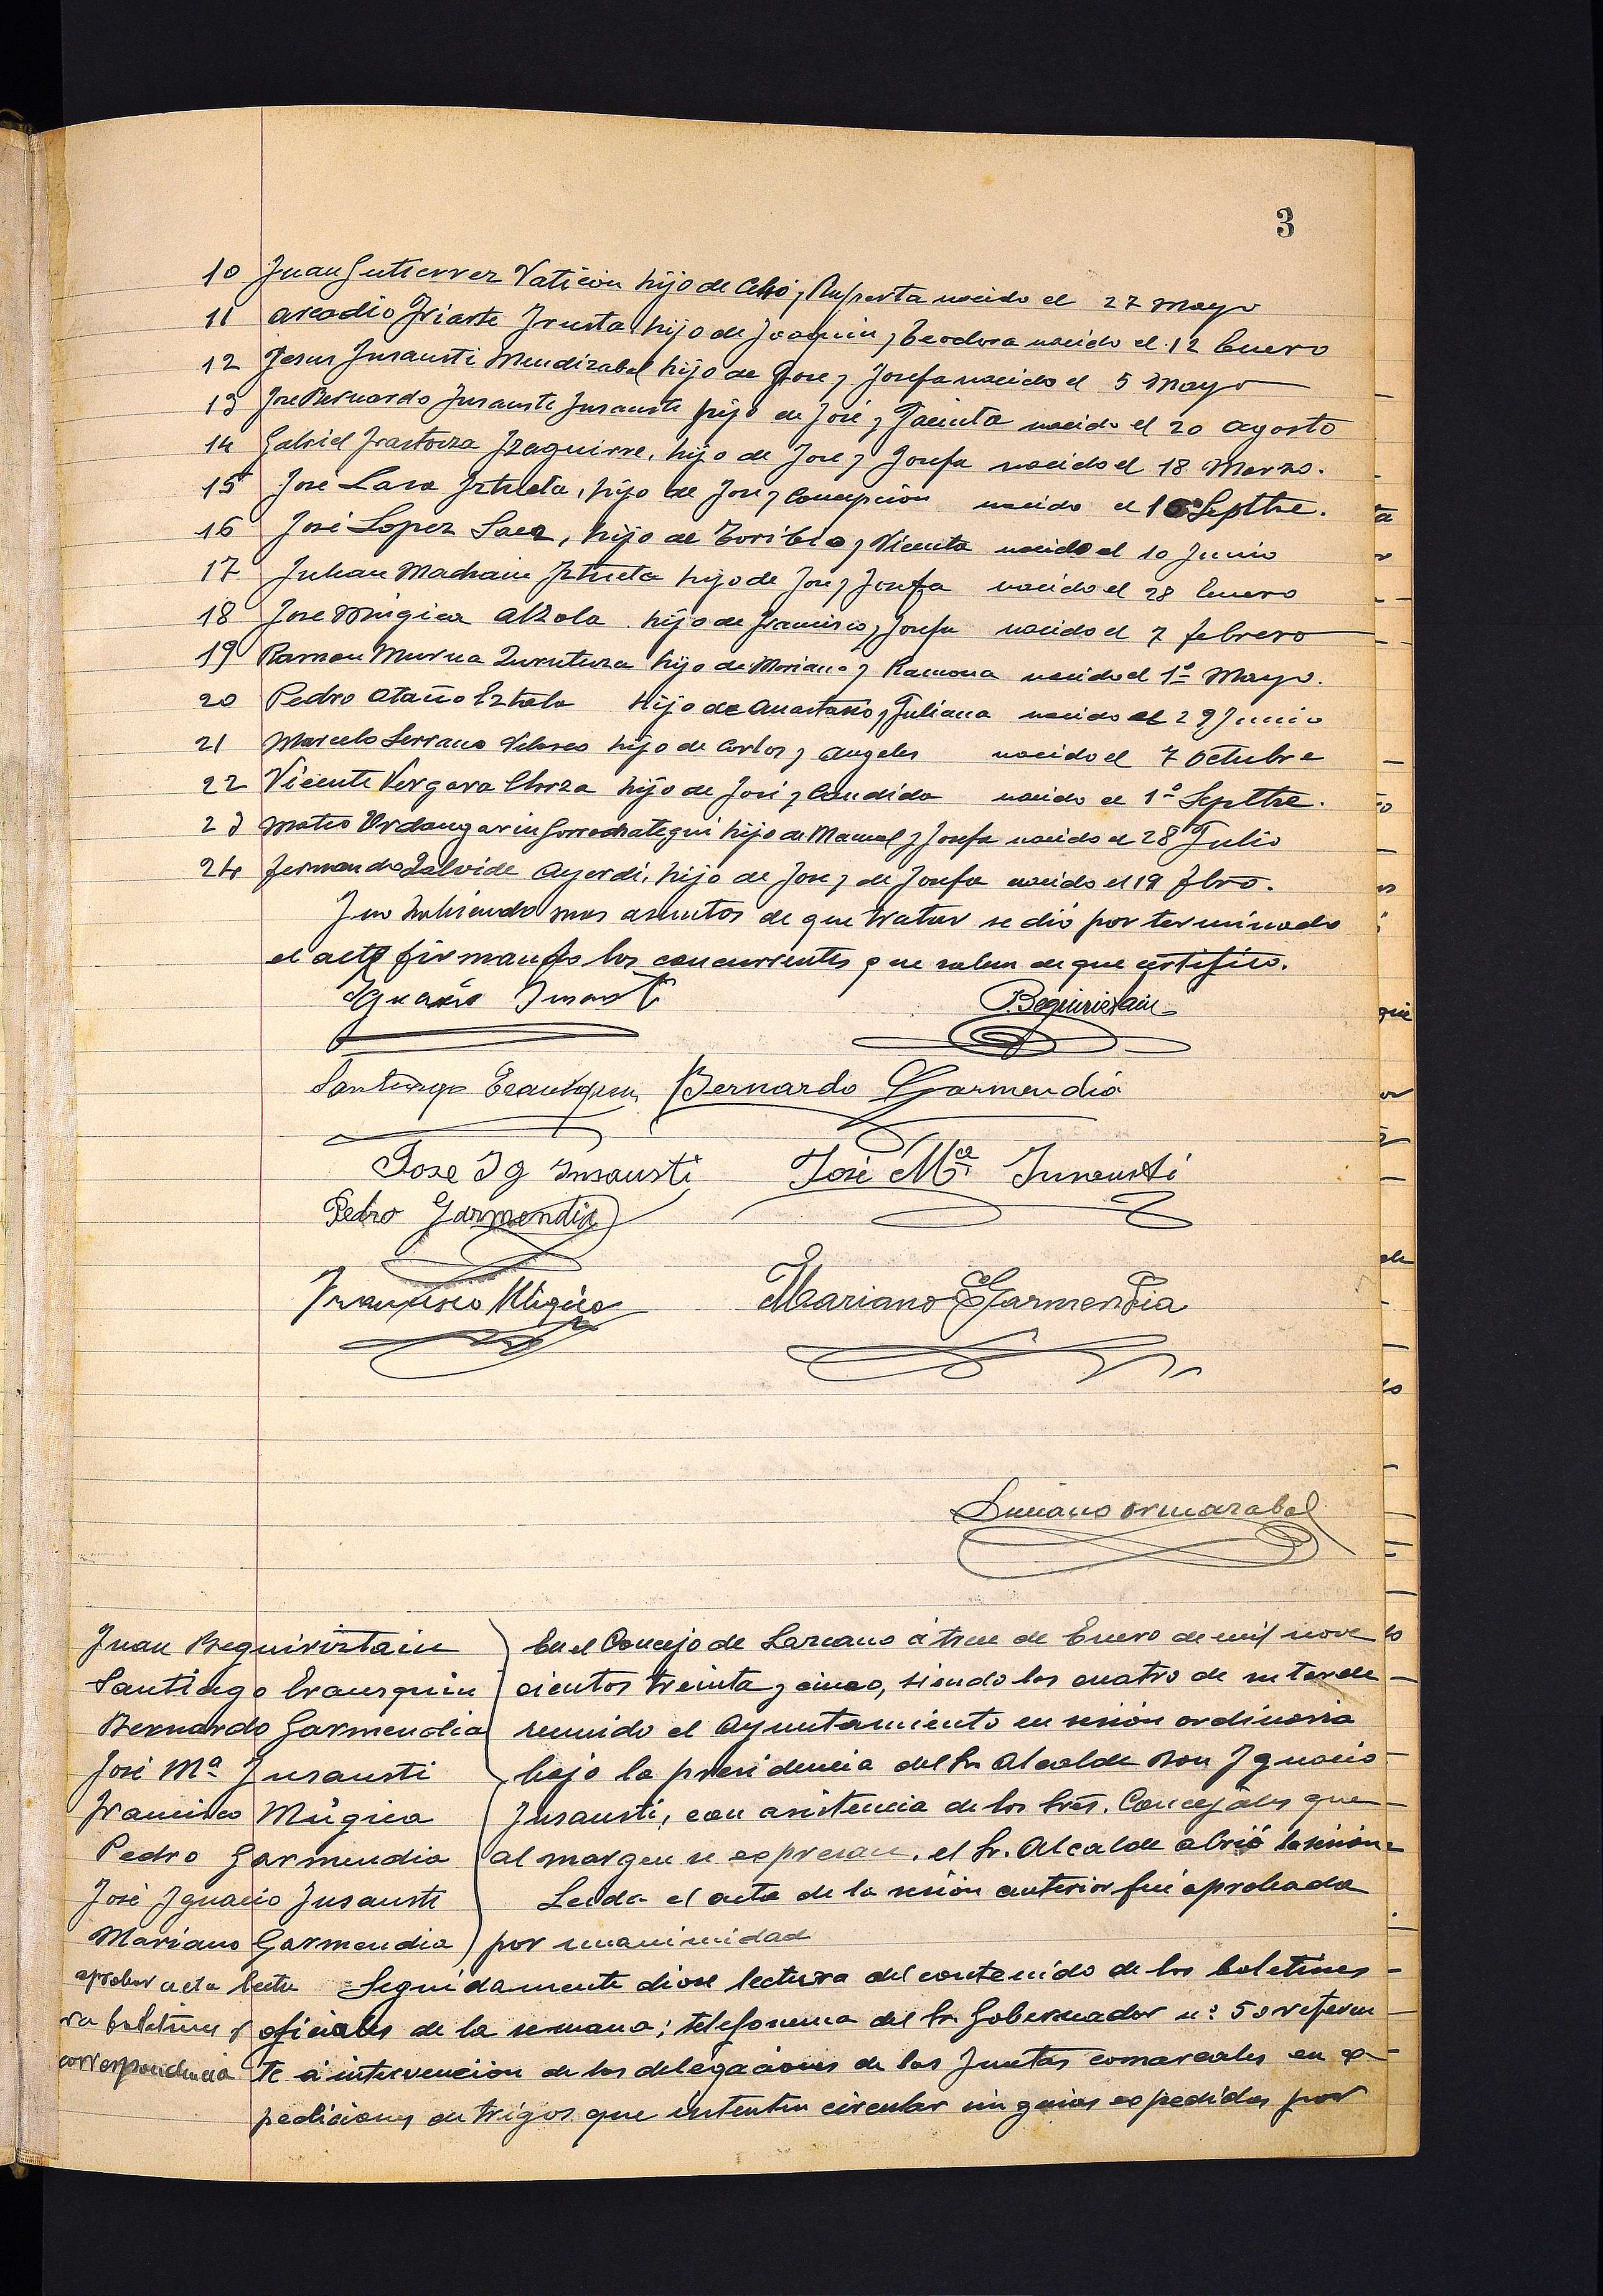 3
10 Juan Gutierrez hijo de y Ruperta nacido el 27 Mayo
11 Arcadio Iriarte Irusta hijo de Joaquin y Teodora nacido el 12 Enero
12 Jesus Insausti Mendizabal hijo de Jose y Josefa nacido el 5 Mayo
13 Jose Bernardo Insausti Insausti hijo de José y Jacinta nacido el 20 Agosto
14 Gabriel Irastorza Izaguirre, hijo de Jose y Josefa nacido el 18 Marzo.
15 Jose Lasa Iztueta, hijo de Jose y Concepcion nacido el 16 Septbre.
16 José Lopez Saez, hijo de Toribio y Vicenta nacido el 10 Junio
17 Julian Machain Iztueta hijo de Jose y Josefa nacido el 28 Enero
18 Jose Mugica Alzola hijo de Francisco y Josefa nacido el 7 febrero
19 Ramon Murua Zurutuza hijo de Mariano y Ramona nacido el 1º Mayo.
20 Pedro Otaño Hijo de Anastasio y Juliana nacido el 29 Junio
21 Marcelo Serrano Velasco hijo de Carlos y Angeles nacido el 7 Octubre
22 Vicente Vergara hijo de José y Candida nacido el 1º Septbre.
23 Mateo Urdangarin Gorrochategui hijo de Manuel y Josefa nacido el 28 Julio
24 Fernando Zalvide Ayerdi, hijo de Jose y de Josefa nacido el 19 Fbro.
Y no habiendo mas asuntos de que tratar se dió por terminado
el acto firmando los concurrentes que saben de que certifico.
Ignacio Insausti
J. Beguiristain
Santiago Erausquin Bernardo Garmendia
Jose Ig Insausti José Mª Insausti
Pedro Garmendia
Francisco Mugica Mariano Garmendia
Luciano Ormazabal
Juan Beguiristain
Santiago Erausquin
Bernardo Garmendia
José Mª Insausti
Francisco Múgica
Pedro Garmendia
José Ignacio Insausti
Mariano Garmendia
En el Concejo de Lazcano á trece de Enero de mil nove
cientos treinta y cinco, siendo las cuatro de su tarde
reunido el Ayuntamiento en sesión ordinaria
bajo la presidencia del Sr Alcalde Don Ignacio
Insausti, con asistencia de los Sres. Concejales que
al margen se expresan, el Sr. Alcalde abrió la sesión
Leida el acta de la sesión anterior fué aprobada
por unanimidad
aprobar acta lectu
ra boletines y
correspondencia
Seguidamente diose lectura del contenido de los boletines
oficiales de la semana; telefonema del Sr Gobernador nº 50 referen
te á intervención de los delegaciones de las Juntas comarcales en ex-
pediciones de trigos que intenten circular sin guias expedidas por